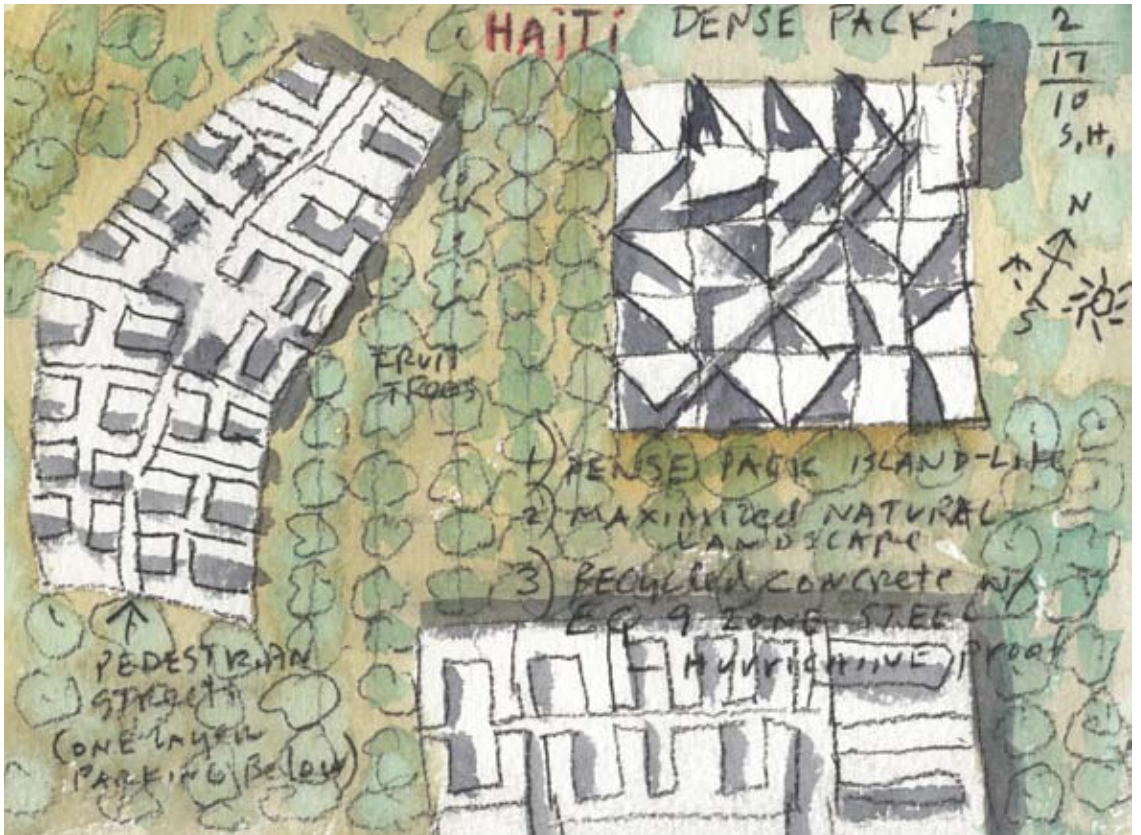 HAiTi DENSE PACK:
2
17
10
S.H.
N
S
FRUIT
TREES
1) DENSE PACK ISLAND-LIKE
2) MAXIMIZED NATURAL
LANDSCAPE
3) RECYCLED CONCRETE W/
EQ 9 ZONE STEEL
— HURRICANE PROOF
PEDESTRIAN
STREETS
(ONE LAYER
PARKING BELOW)